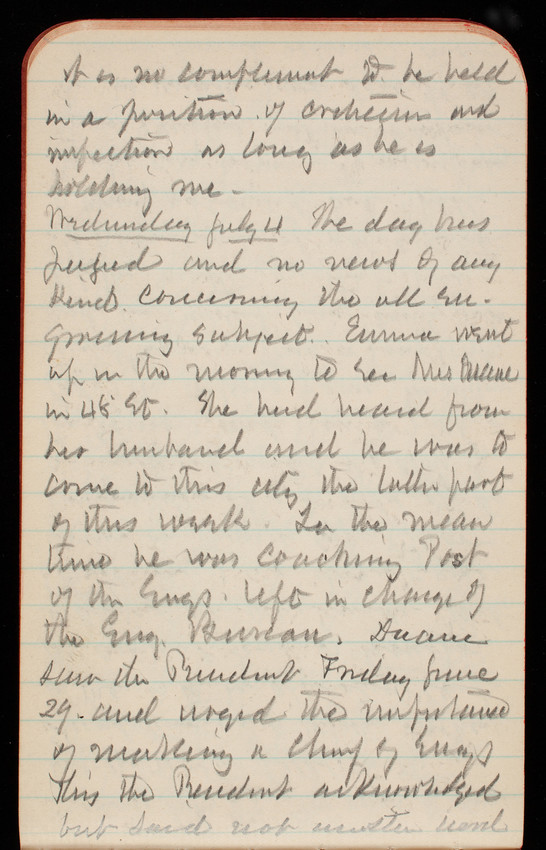 It is no complement to be held
in a position of criticism and
inspection as long as he is
holding me -
Wednesday July 4 The day has
passed and no news of any
kind concerning the all en-
grossing subject. Emma went
up in the morning to see Mrs Duane
in 48 St. She had heard from
her husband and he was to
come to this city the latter part
of this week. In the mean
time he was coaching Post
of the Engs. left in charge of
the Eng. Bureau. Duane
saw the President Friday June
29. and urged the importance
of making a Chief of Engs
This the President acknowledged
but said not